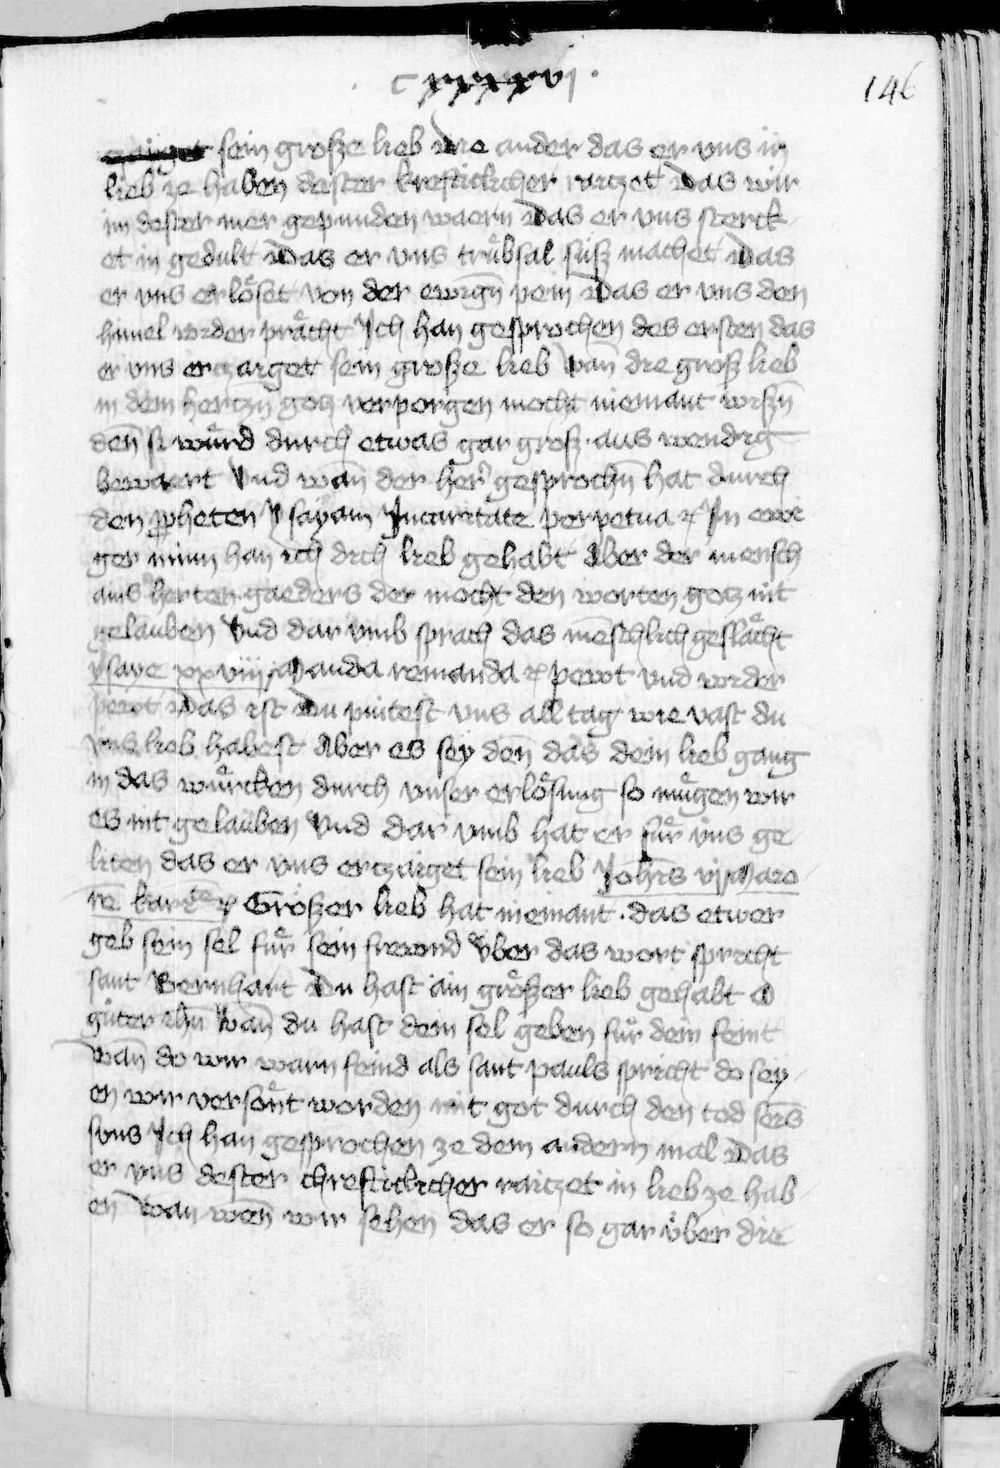 · c xxxxvj ·
146
sein grosze lieb Die ander das er vns in
lieb ze haben dester kreftiklicher raitzet Das wir
im dester mer gepunden waern Das er vns sterck
et in gedult Das er vns trůbsal süsz machet Das
er vns erlöset von der ewign̄ pein Das er vns den
himel wider prächt Ich han gesprochen des ersten das
er vns erczaiget sein grosze lieb Wan̄ die grosz lieb
in dem hertzn̄ gotz verporgen mocht niemant wiszn̄
den̄ si wůrd durch etwas gar grosz aus wendig
bewaert Vnd wan̄ der her̄ gesprochn̄ hat durch
den ꝓpheten Ysayam In caritate perpetua ⁊ In ewi
ger minn han ich dich lieb gehabt Aber der mensch
ains herten gaeders der mocht den worten gotz nit
gelauben Vnd dar vmb sprach das mēschlich geslächt
ysaye xxviii Manda remanda ⁊ pewt vnd wider
pewt Das ist Du piutest vns all tag wie vast du
vns lieb habest Aber es sey den̄ das dein lieb gang
in das wůrcken durch vnser erlösung so můgen wir
es nit gelauben Vnd dar vmb hat er fůr vns ge
liten das er vns erczaiget sein lieb Joh̄is vj Maio
rē karitatē ⁊ Gröszer lieb hat niemant · das etwer
geb sein sel fůr sein frewnd Vber das wort spricht
sant Bernhart Du hast ain gröszer lieb gehabt O
gůter ih̄u Wan̄ du hast dein sel geben fůr dein feint
Wan̄ do wir warn feind als sant pauls spricht do sey
en wir versönt worden mit got durch den tod seīs
suns Ich han gesprochen ze dem andern mal Das
er vns dester chreftiklicher raitzet in lieb ze hab
en Wan wen̄ wir sehen das er so gar über die